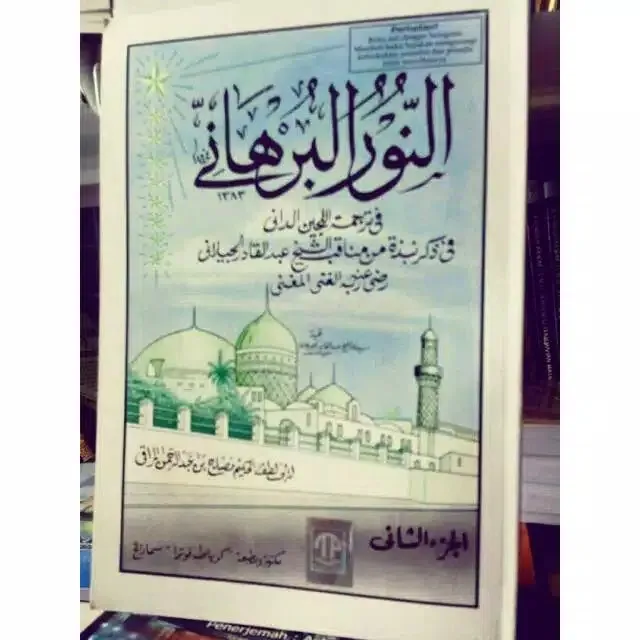 Perhatian!
النُّورُ البُرْهَانِيّ
١٣٨٣
في ترجمة اللجين الداني
في ذكر نبذة من مناقب الشيخ عبد القادر الجيلاني
رضي عنه ربه الغني المغني
لأبي لطف الحكيم مصلح بن عبد الرحمن المراقي
الجزء الثاني
مكتبة ومطبعة "كرياطه فوترا" سماراغ
Penerjemah : A